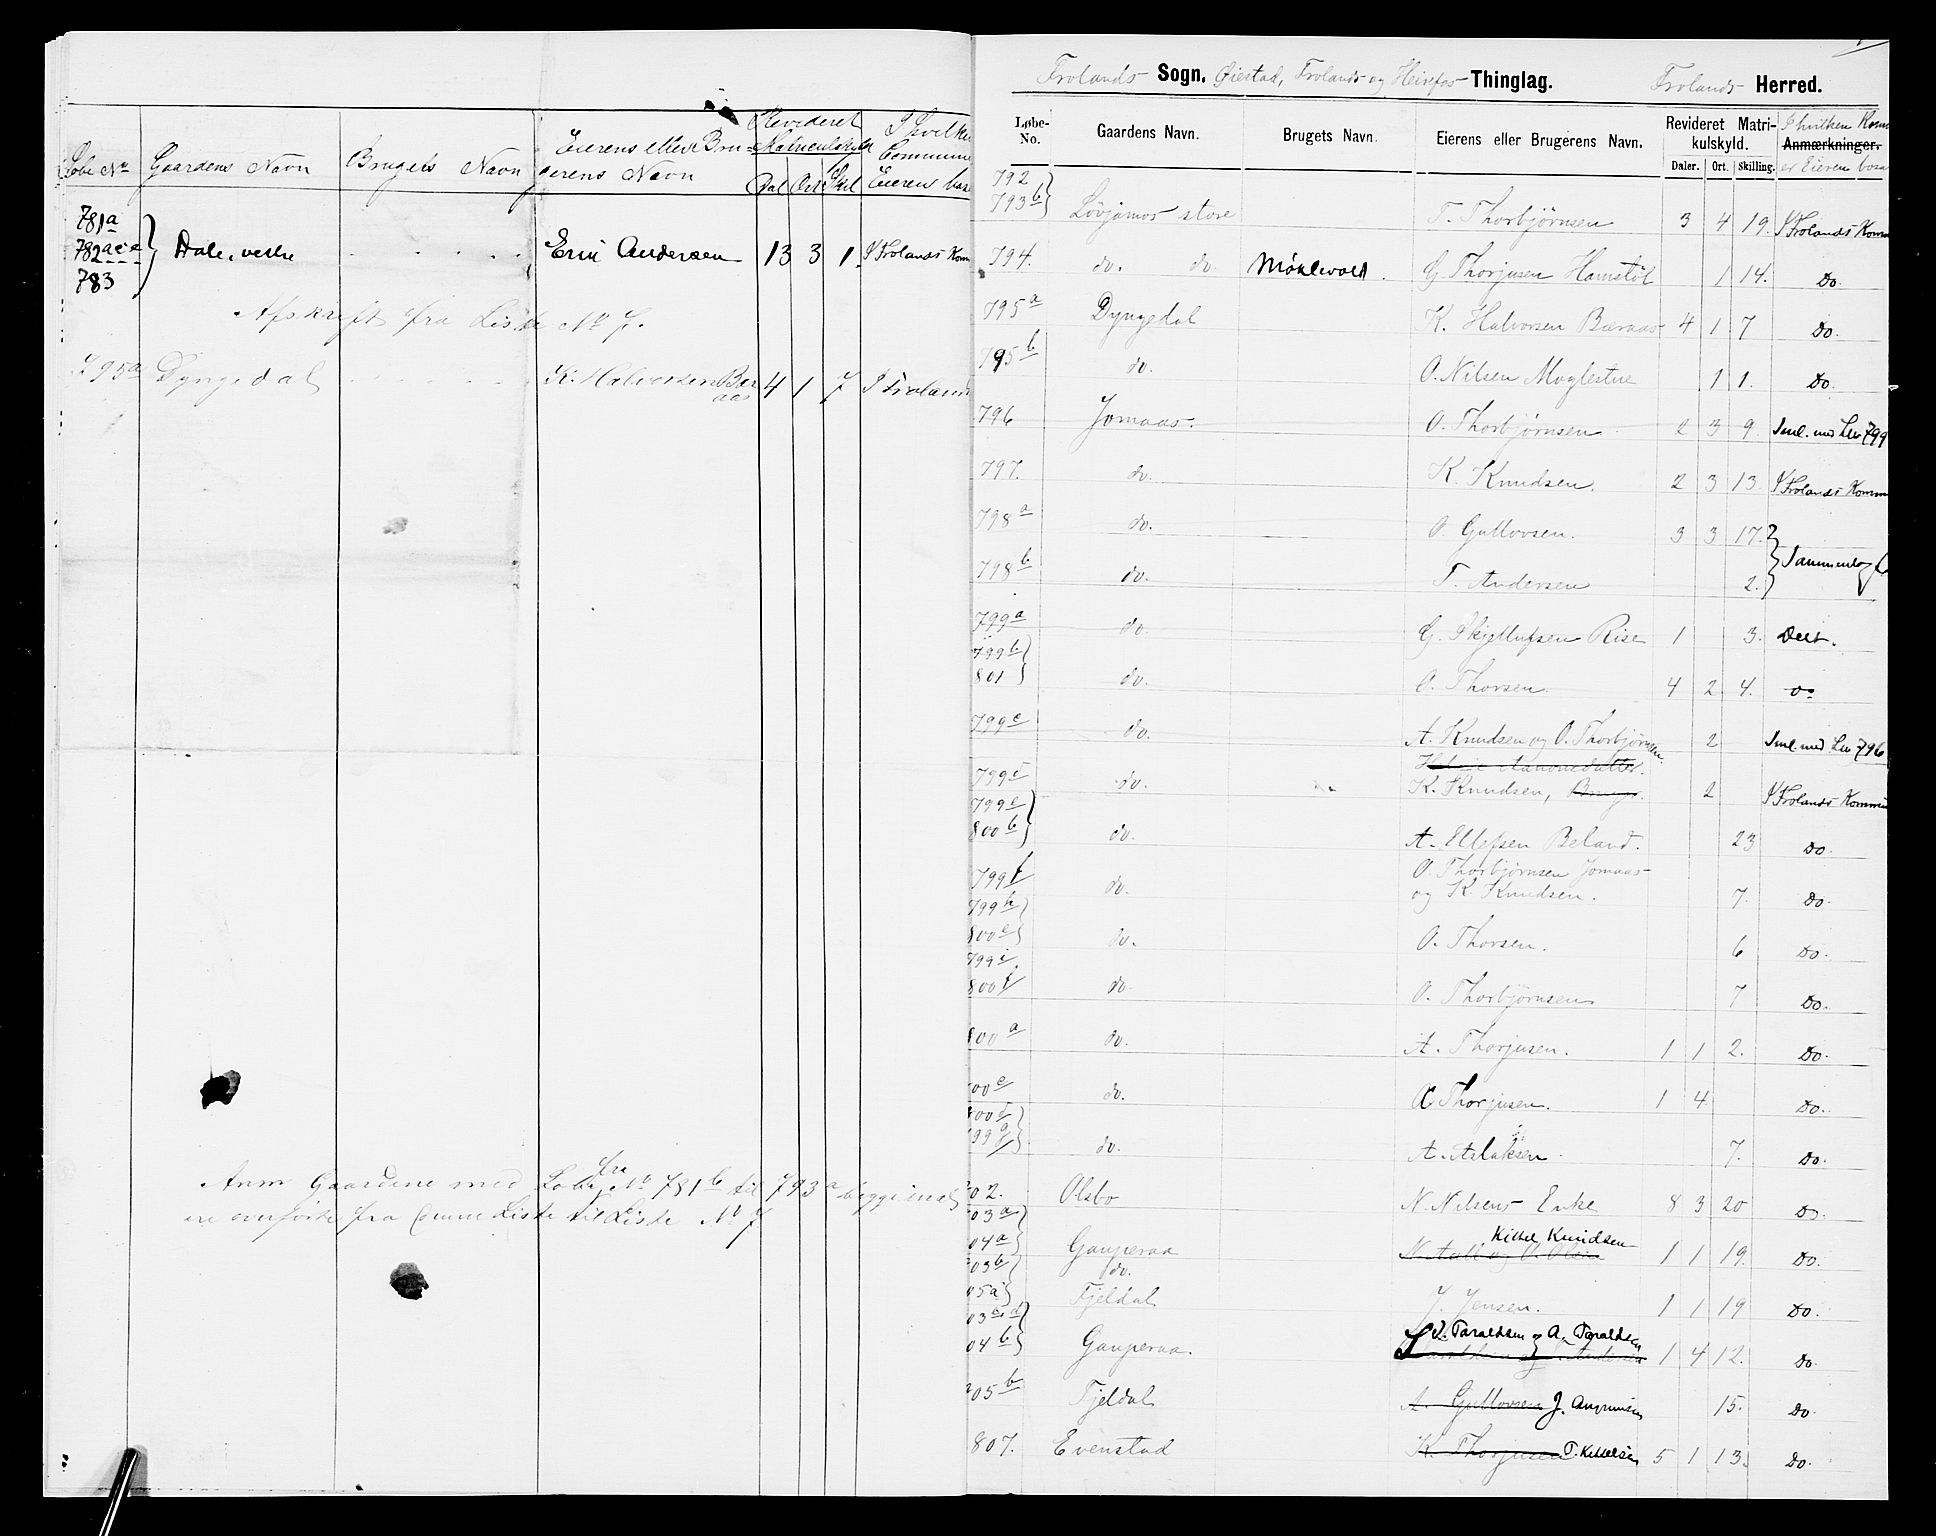 Løbe No Gaardens Navn Brugets Navn Eierens eller Bru- Revideret I hvilken
gerens Navn Matriculskyld Commune
Dal Ort Skil Eieren bor
781a
782ac-e } Dale, vestre . . . . . Erik Andersen 13 3 1. I Frolands Kom
783
Afskrift fra Liste No 7.
795a Dyngedal . . . . . . K. Halvorsen Bær 4 1 7 I Froland
aas
Anm Gaardene med Løbe No fra 781b til 793a begge incl
ere overførte fra denne Liste til Liste No 7
Frolands Sogn. Øiestad, Frolands og Heirefos Thinglag. Frolands Herred.
Løbe-No. Gaardens Navn. Brugets Navn. Eierens eller Brugerens Navn. Revideret Matri-kulskyld. I hvilken Kom
Anmærkninger.
Daler. Ort. Skilling. er Eieren bosa
792
793b } Løvjomas store T. Thorbjørnsen 3 4 19. I Frolands Kom
794. do. do. Møklevold. G. Thorjusen Hamstøl 1 14. Do.
795a Dyngedal K. Halvorsen Bæraas 4 1 7 Do.
795b do. O. Nilsen Moglestue 1 1. Do.
796 Jomaas. O. Thorbjørnsen 2 3 9. Sml. med Lno 799
797. do. K. Knudsen. 2 3 13. I Frolands Komm
798a do. O. Gullovsen. 3 3 17. } Sammenlag
798b do. T. Andersen 2.
799a do. G. Skjellufsen Rise 1 3. Delt.
799b
801 } do. O. Thorsen. 4 2. 4. do
799c do. A. Knudsen og O. Thorbjørnsen. 2 Sml. med Lno 796
799d do. K. Knudsen, Bruger. 2 I Frolands Kommu
799e
800b } do. A. Ellefsen Beland. 23 Do.
799f do. O. Thorbjørnsen Jomaas
og K. Knudsen. 7. Do.
799h
800e } do. O. Thorsen. 6 Do.
799i
800f do. O. Thorbjørnsen 7 Do.
800a do. A. Thorjusen. 1 1 2. Do.
00c do. A Thorjusen. 1 4 Do.
800d
799g } do. A. Aslaksen. 7. Do.
02. Olsbo N. Nilsens Enke 8 3 20 Do.
03a
04a } Gauperaa Kittel Knudsen 1 1 19. Do.
03b do.
05a } Fjeldal J. Jensen. 1 1 19 Do.
03c-d
04b } Gauperaa. Taraldsen og A. Taraldsen 1 4 12. Do.
05b Fjeldal A. Gullovsen J. 15. Do.
807. Evenstad K. Thorjusen T. Kittelsen 5 1 13. Do.